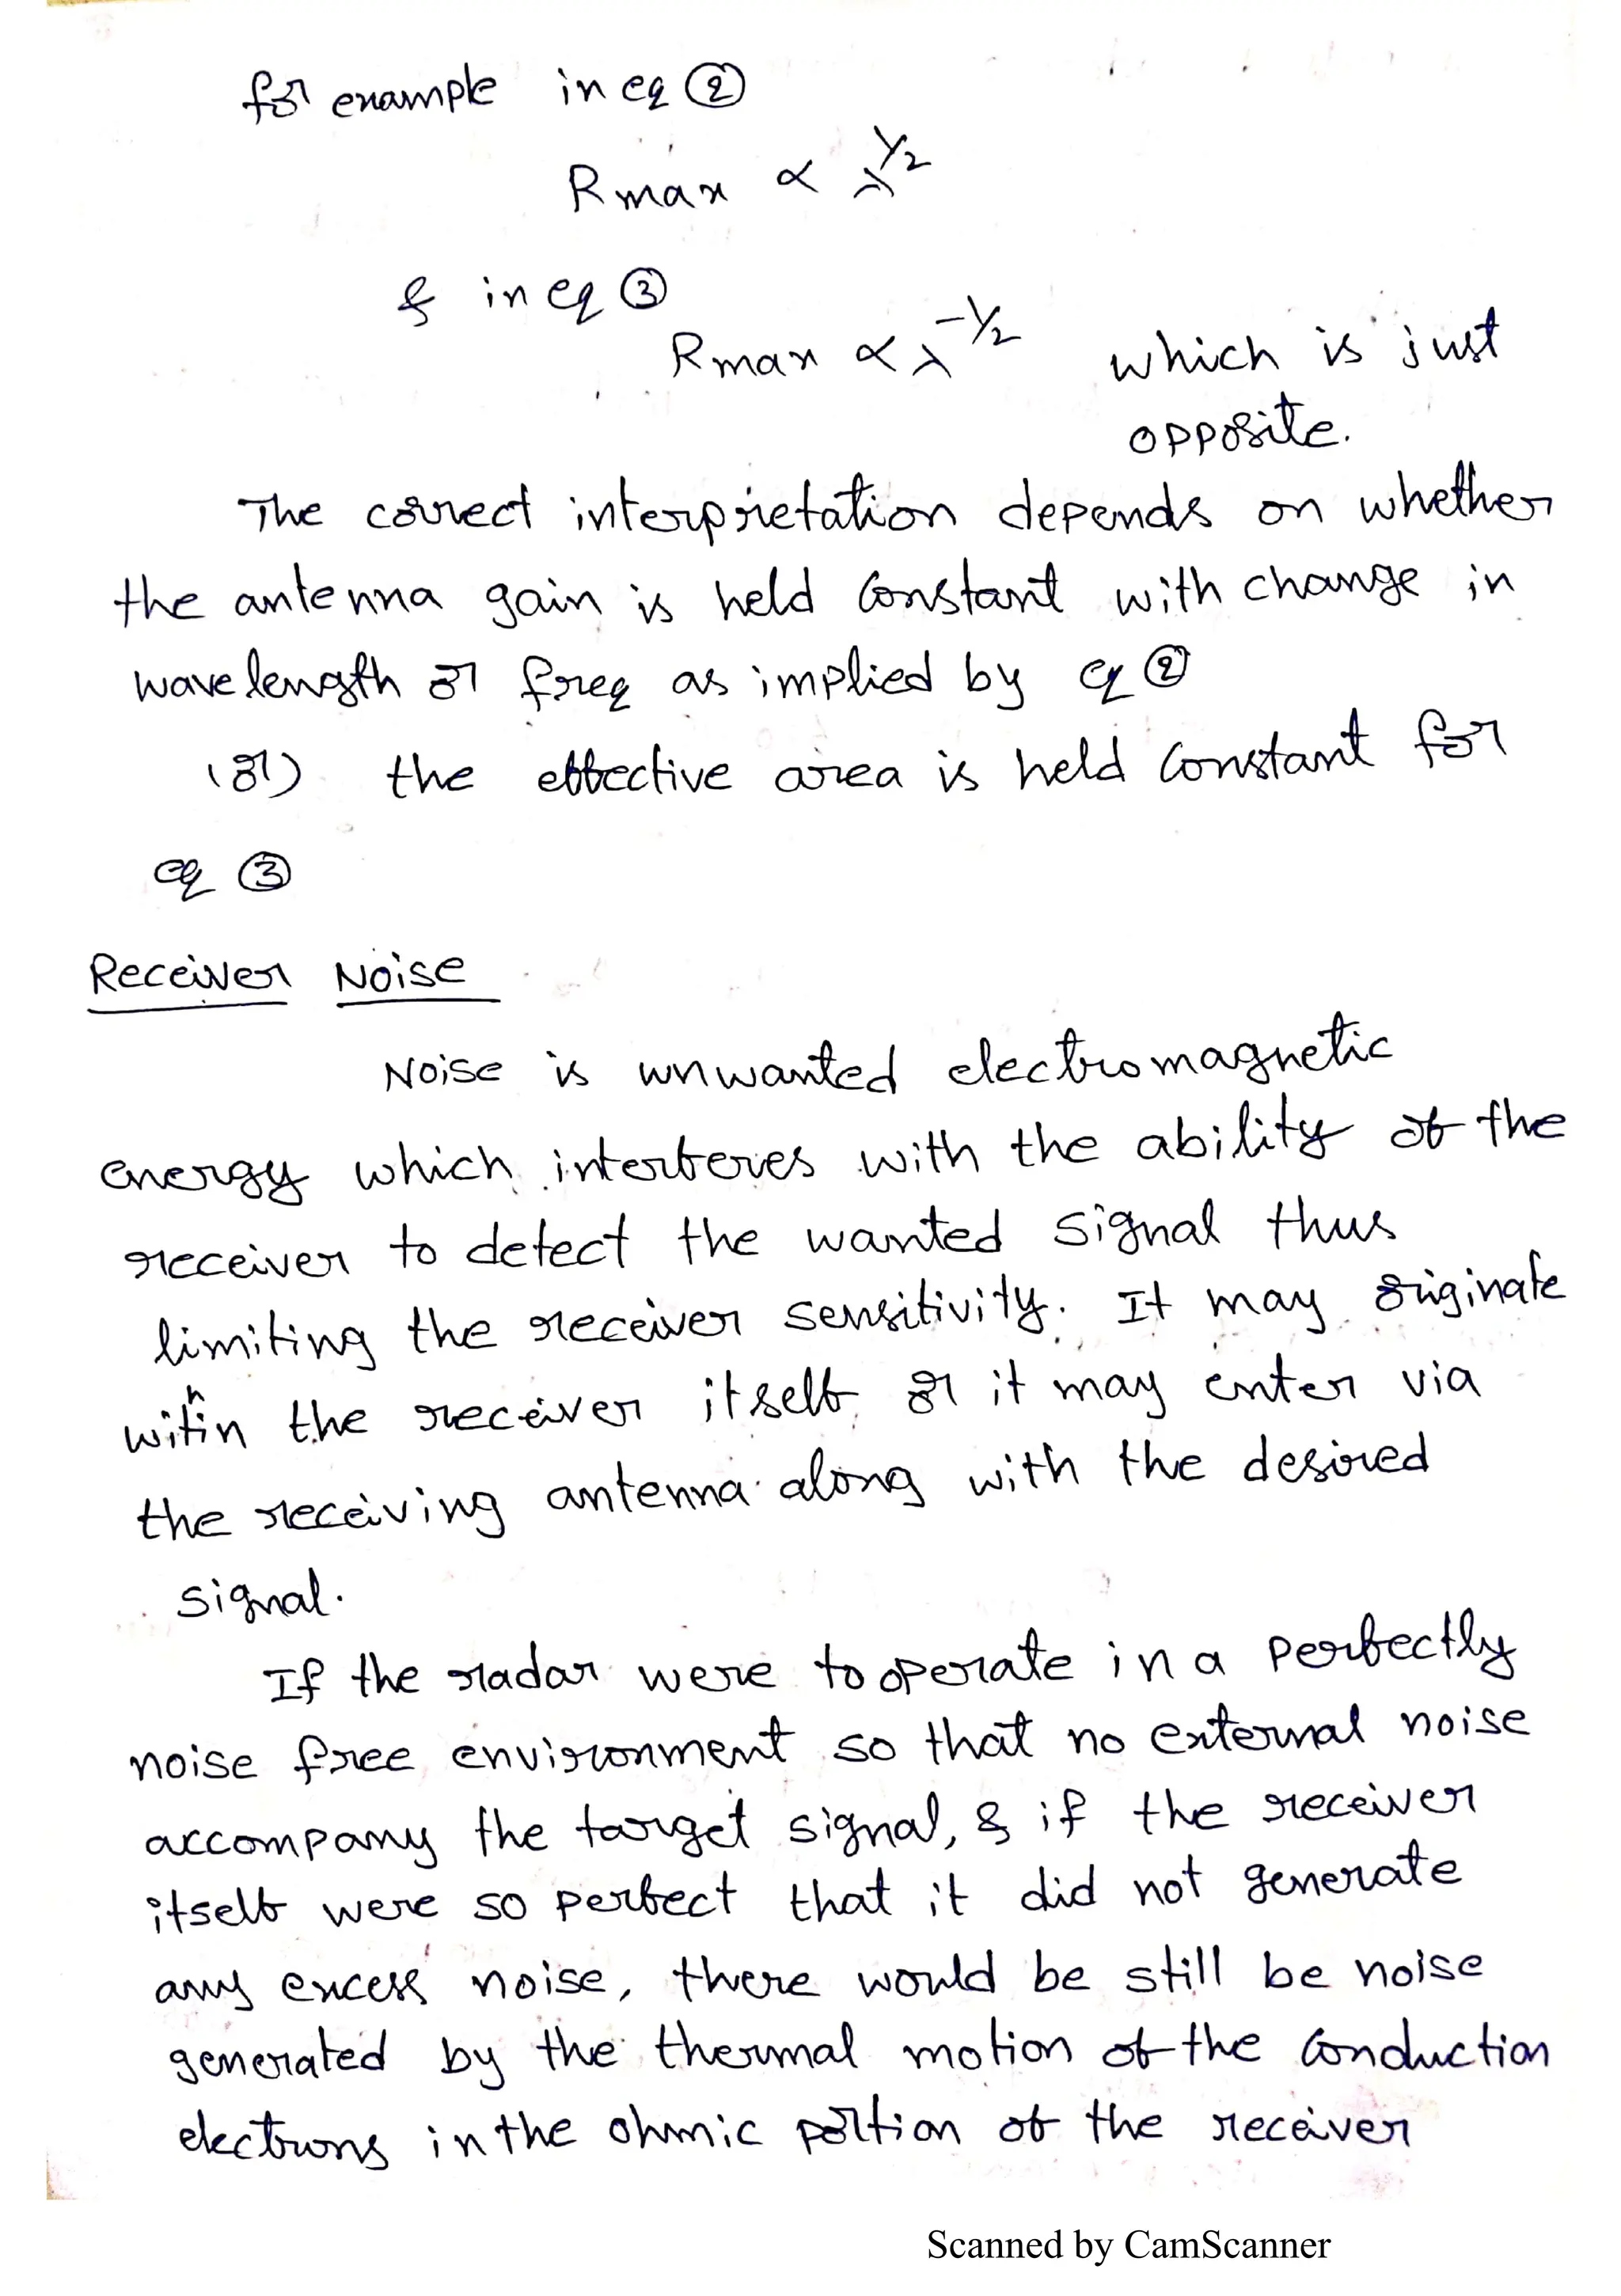 for example in eq ②
Rmax ∝ λ^1/2
& in eq ③
Rmax ∝ λ^-1/2 which is just
opposite.
The correct interpretation depends on whether
the antenna gain is held constant with change in
wavelength or freq as implied by eq ②
(or) the effective area is held constant for
eq ③
Receiver Noise
Noise is unwanted electromagnetic
energy which interferes with the ability of the
receiver to detect the wanted signal thus
limiting the receiver sensitivity. It may originate
within the receiver itself, or it may enter via
the receiving antenna along with the desired
signal.
If the radar were to operate in a perfectly
noise free environment so that no external noise
accompany the target signal, & if the receiver
itself were so perfect that it did not generate
any excess noise, there would be still be noise
generated by the thermal motion of the conduction
electrons in the ohmic portion of the receiver
Scanned by CamScanner